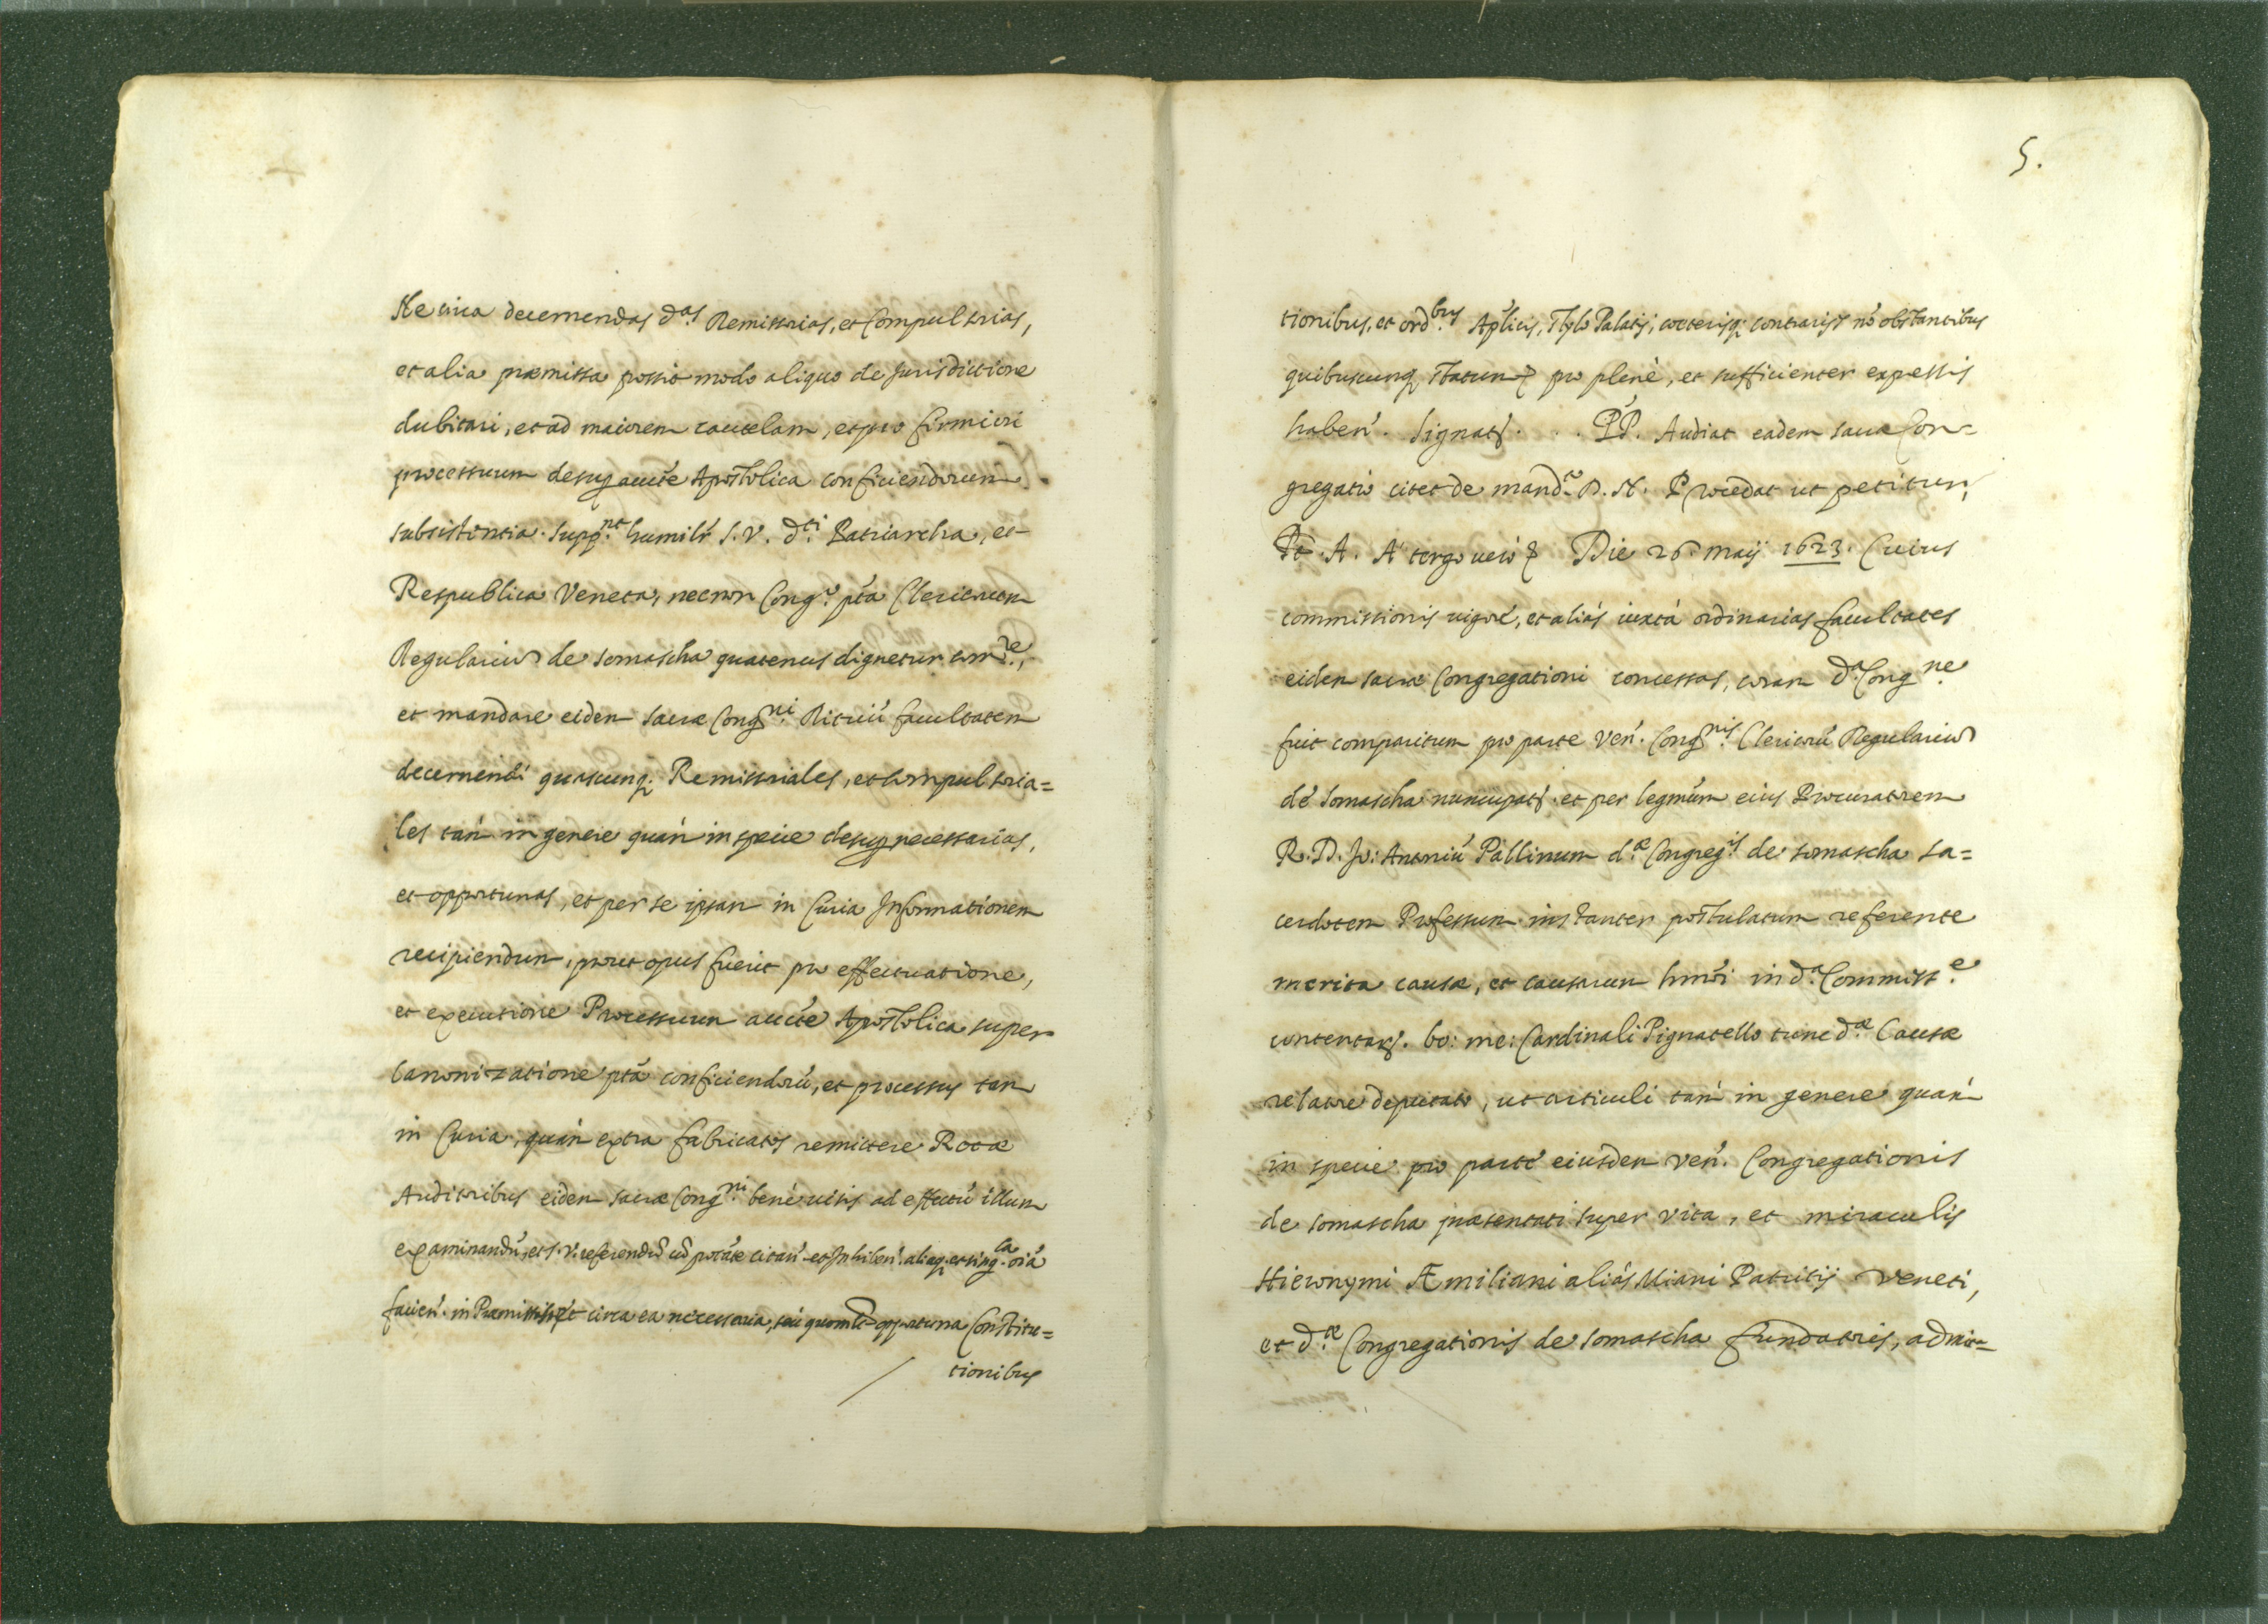 Ne circa decernendas d.as Remissorias, et Compulsorias,
et alia præmissa possit modo aliquo de Jurisdictione
dubitari, et ad maiorem cautelam, et pro firmiori
processuum desup. aucte Apostolica conficiendorum
subsistentia. Supp.nt humilr S. V. d.ti Patriarcha, et
Respublica Veneta, necnon Cong.o pta Clericorum
Regularium de Somascha quatenus dignetur com.re,
et mandare eidem sacræ Cong.ni Rituũ facultatem
decernendi quascunq; Remissoriales, et Compulsoria=
les tam in genere quam in specie desup. necessarias,
et opportunas, et per se ipsam in Curia Informationem
recipiendum, prout opus fuerit pro effectuatione,
et executione Processuum aucte Apostolica super
Canonizatione pta conficiendorũ, et processus tam
in Curia, quam extra fabricatos remittere Rotæ
Auditoribus eidem sacræ Cong.ni bene visis ad effectũ illum
examinandũ, et S. V. referendũ cũ ptate citan. et Inhiben. aliaq; et sing.la oia
facien. in Præmissis, et circa ea necessaria, seu quomlt opportuna Constitu=
tionibus
5.
tionibus, et ord.bus Aplicis, stylo Palatij, cæterisq; contrarijs nõ obstantibus
quibuscunq; statum pro plenè, et sufficienter expressis
haben. Signat. . . PP. Audiat eadem sacra Con=
gregatio citet de mand.o D. N. Procedat ut petitur,
Pt. A. A tergo verò Die 26 maij 1623. Cuius
commissionis vigore, et aliàs iuxtà ordinarias facultates
eidem sacræ Congregationi concessas, coram d.a Cong.ne
fuit comparitum pro parte Ven. Cong.nis Clericorũ Regularium
de Somascha nuncupat. et per legmum eius Procuratorem
R. D. Jo: Antoniũ Pallinum d.æ Congreg.is de Somascha Sa=
cerdotem Professum instanter postulatum referente
merita causæ, et causarum hmõi in d.a Commiss.e
contentar. bo: me: Cardinali Pignatello tunc d.æ Causæ
relatore deputato, ut articuli tam in genere quam
in specie pro parte eiusdem Ven. Congregationis
de Somascha præsentati super vita, et miraculis
Hieronymi Æmiliani aliàs Miani Patritij Veneti,
et d.æ Congregationis de Somascha fundatoris, admit=